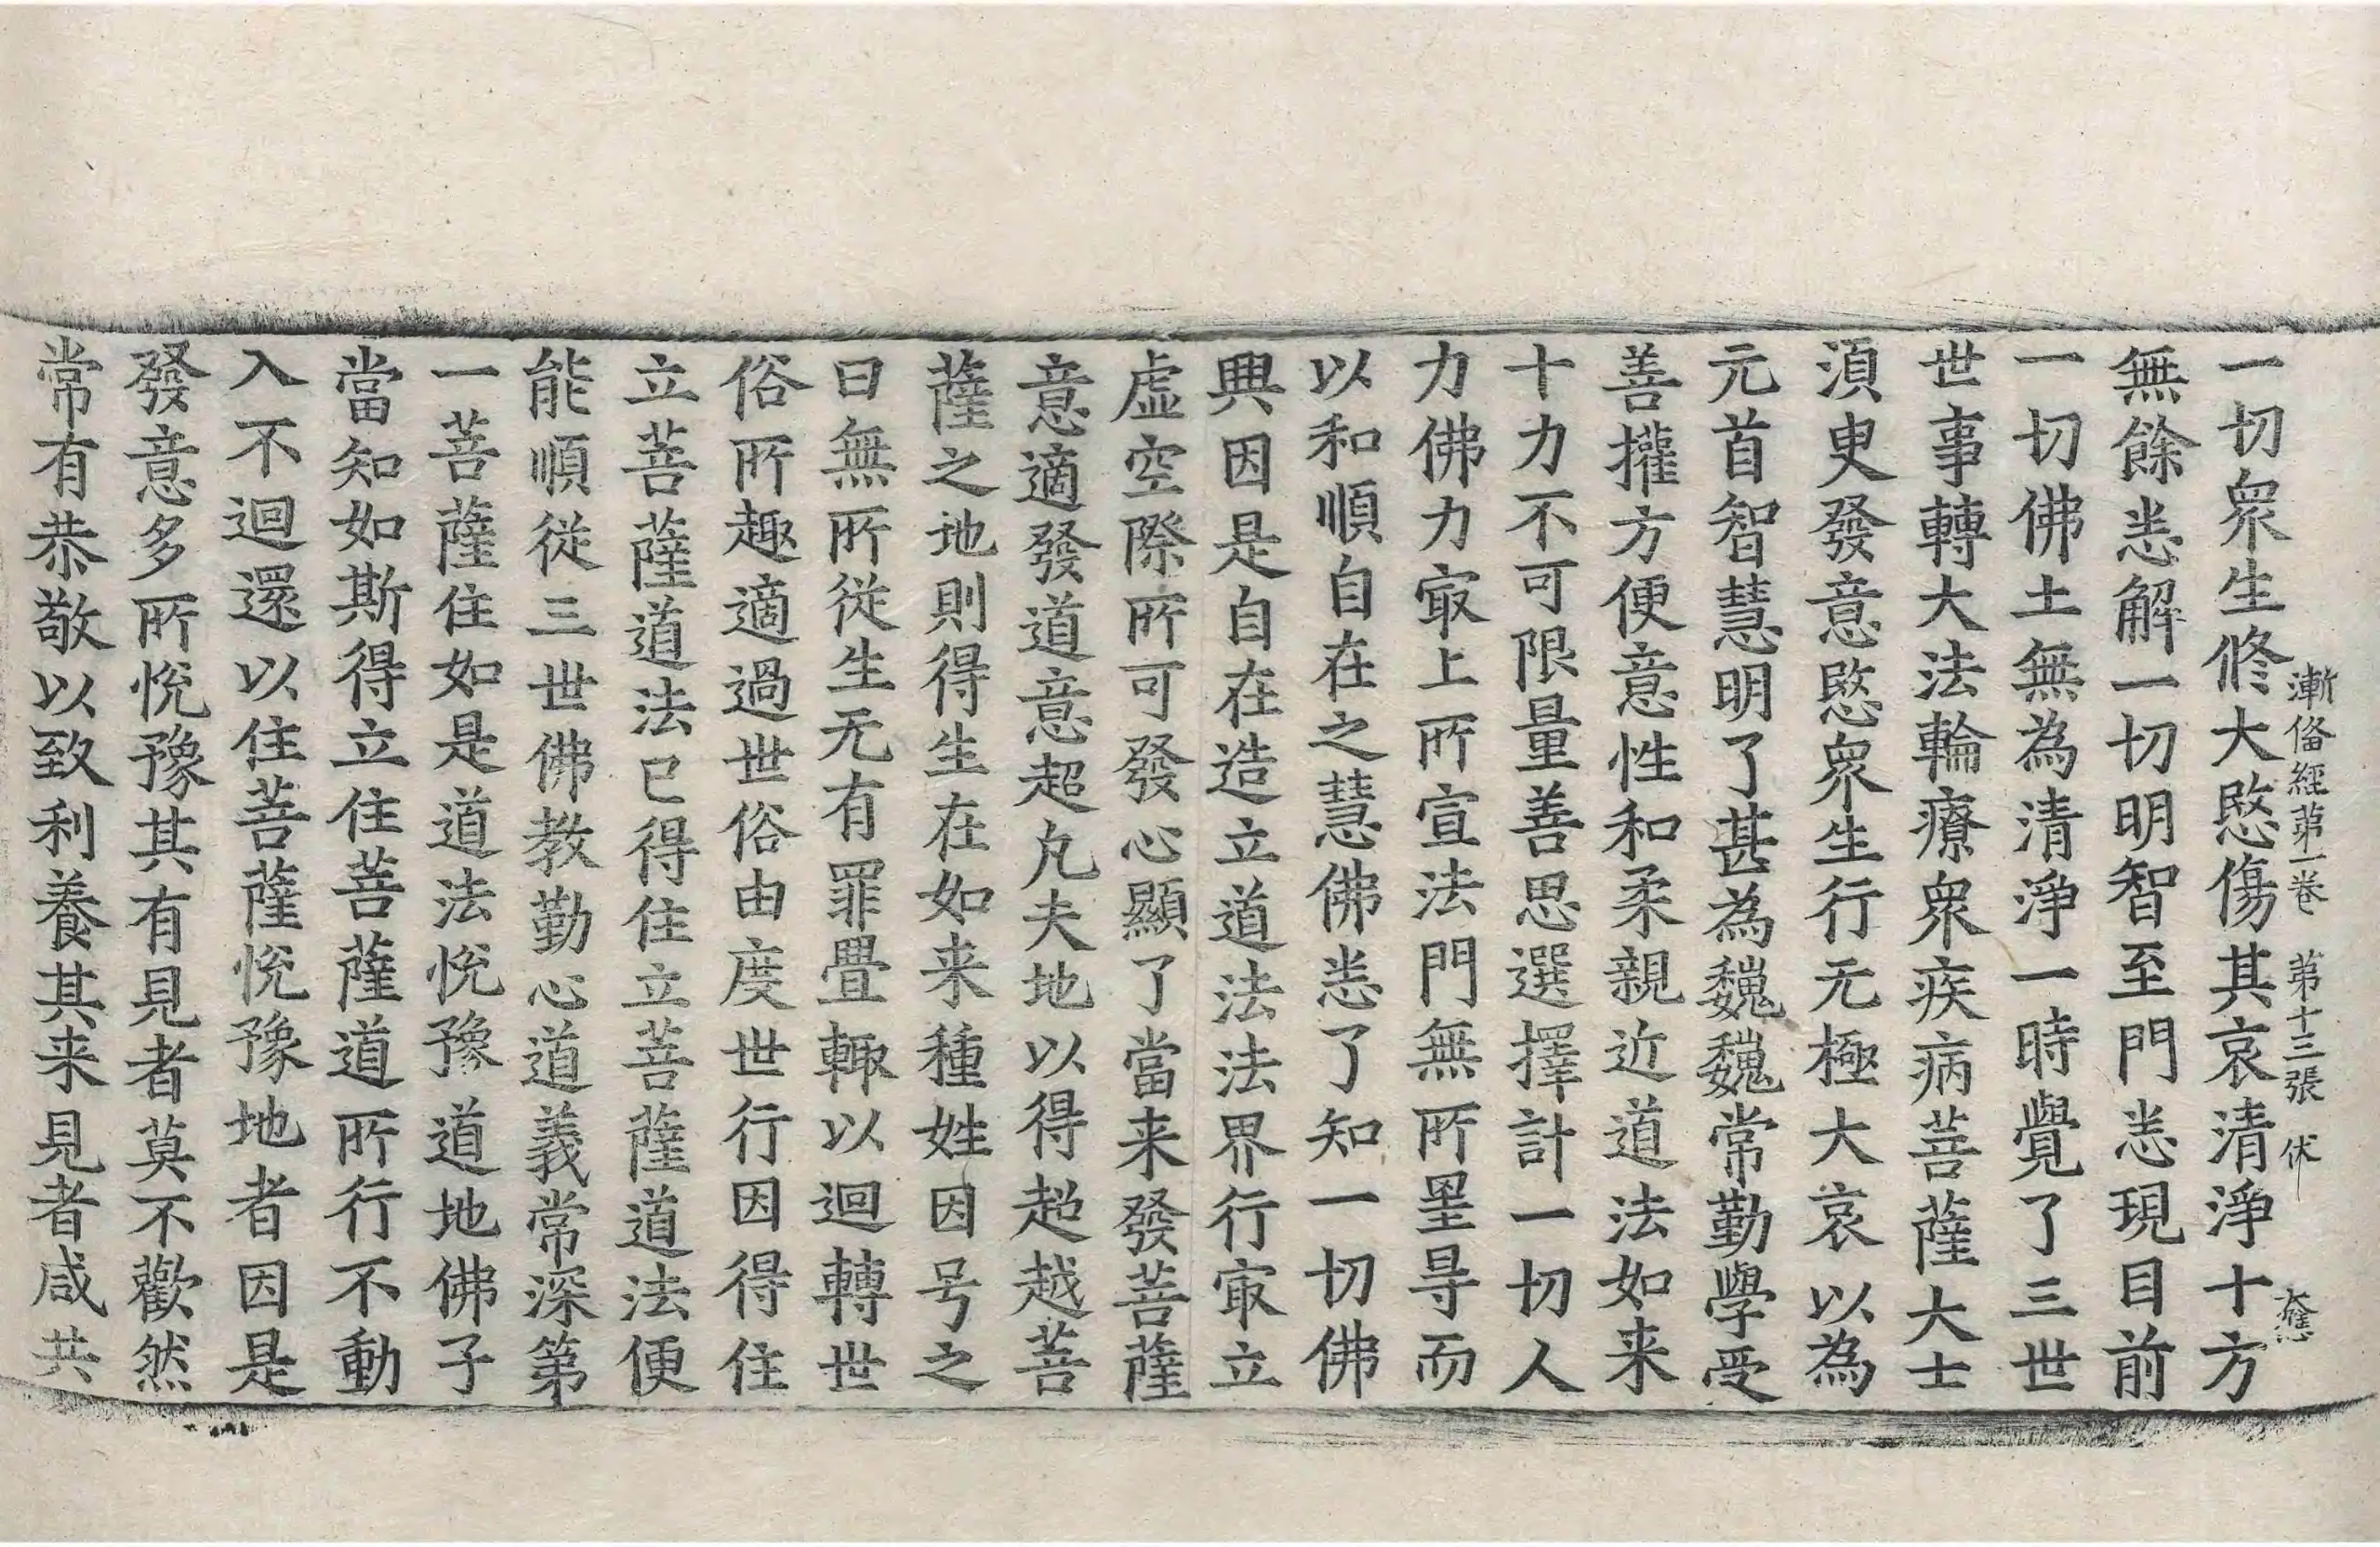 漸俻經第一卷　第十三張　伏
一切衆生修大愍傷其哀清淨十方
無餘恙解一切明智至門恙現目前
一切佛土無為清淨一時覺了三世
世事轉大法輪療衆疾病菩薩大士
湏臾發意愍衆生行无極大哀以為
元首智慧明了甚為巍巍常勤學受
善攉方便意性和柔親近道法如来
十力不可限量善思選擇計一切人
力佛力㝡上所宣法門無所罣㝵而
以和順自在之慧佛恙了知一切佛
興因是自在造立道法法界行㝡立
虚空際所可發心顯了當来發菩薩
意適發道意超凡夫地以得超越菩
薩之地則得生在如来種姓因号之
曰無所從生无有罪疊輙以迴轉世
俗所趣適過世俗由度世行因得住
立菩薩道法已得住立菩薩道法便
能順從三世佛教勤心道義常深第
一菩薩住如是道法恱豫道地佛子
當知如斯得立住菩薩道所行不動
入不迴還以住菩薩恱豫地者因是
發意多所恱豫其有見者莫不歡然
常有恭敬以致利養其来見者咸共